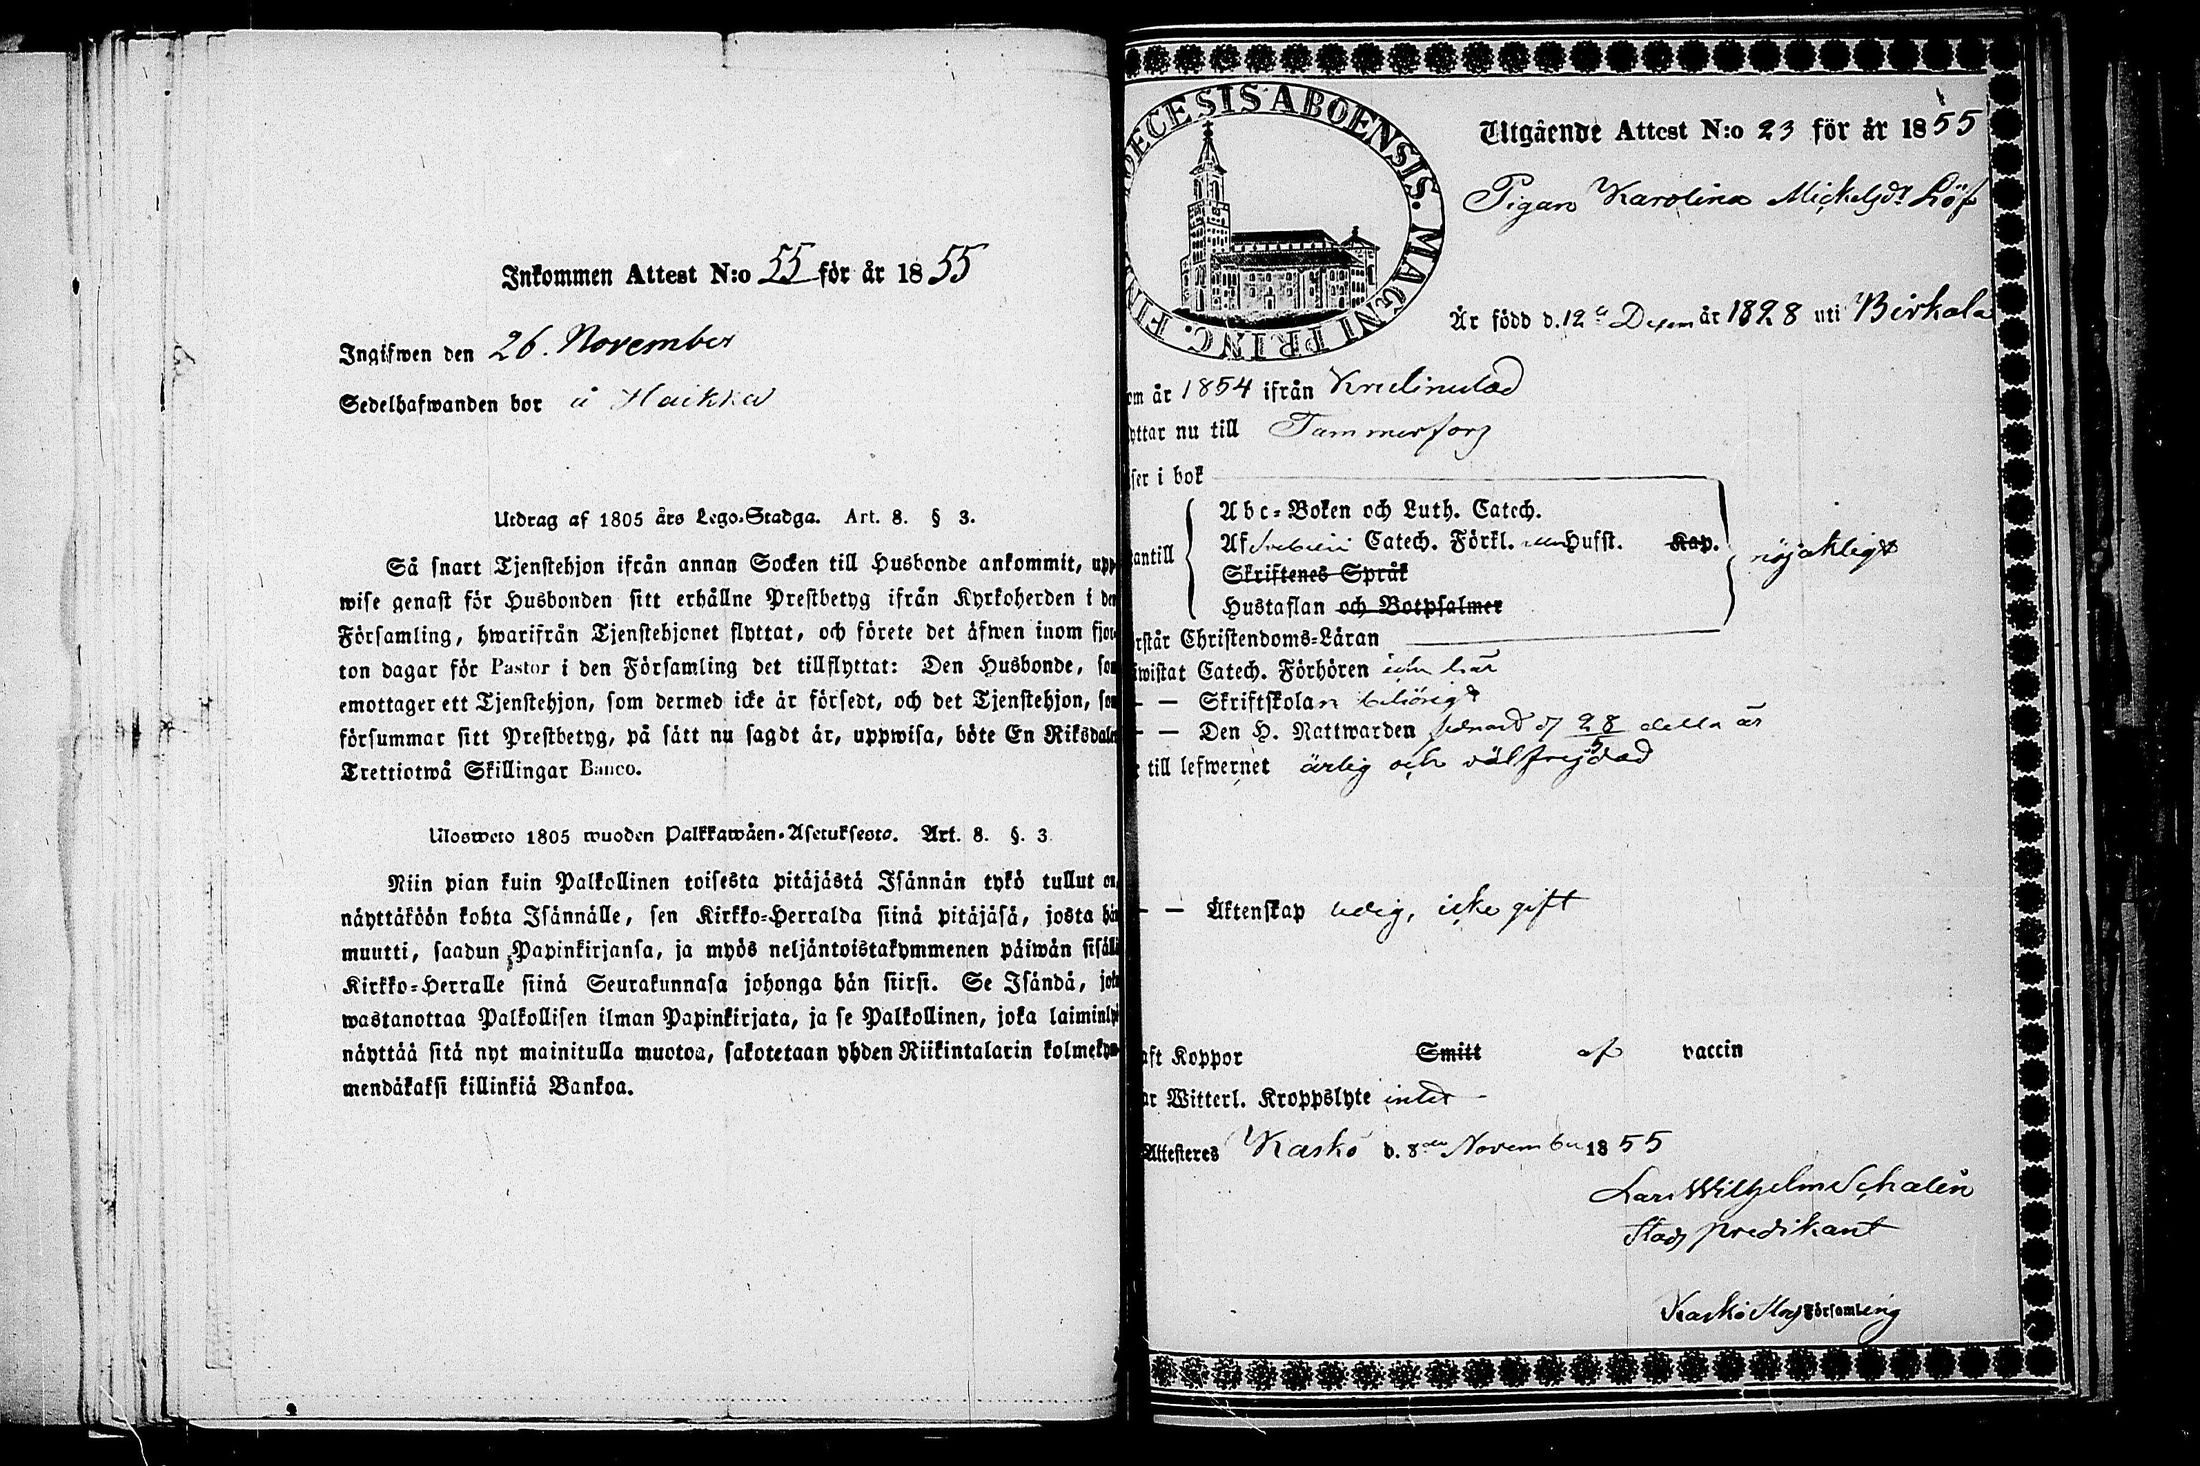 Inkommen Attest N:o 55 för år 1855
Ingifwen den 26. November
Sedelhafwanden bor å Haikka
Utdrag af 1805 års Lego-Stadga. Art. 8. § 3.
Så snart Tjenstehjon ifrån annan Socken till Husbonde ankommit, upp-
wise genast för Husbonden sitt erhållne Prestbetyg ifrån Kyrkoherden i den
Församling, hwarifrån Tjenstehjonet flyttat, och förete det äfwen inom fjor-
ton dagar för Pastor i den Församling det tillflyttat: Den Husbonde, som
emottager ett Tjenstehjon, som dermed icke är försedt, och det Tjenstehjon, som
försummar sitt Prestbetyg, på sätt nu sagdt är, uppwisa, böte En Riksdaler
Trettiotwå Skillingar Banco.
Ulosweto 1805 wuoden Palkkawäen-Asetuksesta. Art. 8. §. 3.
Niin pian kuin Palkollinen toisesta pitäjästä Isännän tykö tullut on,
näyttäköön kohta Isännälle, sen Kirkko-Herralda siinä pitäjäsä, josta hän
muutti, saadun Papinkirjansa, ja myös neljäntoistakymmenen päiwän sisällä
Kirkko-Herralle siinä Seurakunnasa johonga hän siirsi. Se Isändä, joka
wastanottaa Palkollisen ilman Papinkirjata, ja se Palkollinen, joka laiminlyö
näyttää sitä nyt mainitulla muotoa, sakotetaan yhden Riikintalarin kolmekym-
mendäkaksi killinkiä Bankoa.
DIOECESIS ABOENSIS. MAGNI PRINC. FIN
Utgående Attest N:o 23 för år 1855
Pigan Karolina Mickelsdr Löf
Är född d. 12te Decem år 1828 uti Birkala
om år 1854 ifrån Kristinestad
yttar nu till Tammerfors
ser i bok
Abc-Boken och Luth. Catech.
Af Svebelii Catech. Förkl. utan Hufst. Kap.
antill
nöjaktigt
Skriftenes Språk
Hustaflan och Botpsalmer
rstår Christendoms-Läran
iwistat Catech. Förhören icke här
— — Skriftskolan behörigt
— — Den H. Nattwarden sednast d 28/5 detta år
till lefwernet ärlig och välfrejdad
— — Äktenskap ledig, icke gift
aft Koppor Smitt af vaccin
ar Witterl. Kroppslyte intet
Attesteres Kaskö d. 8de November 1855
Lars Wilhelm Schalin
Stads predikant
Kaskö Stads Församling